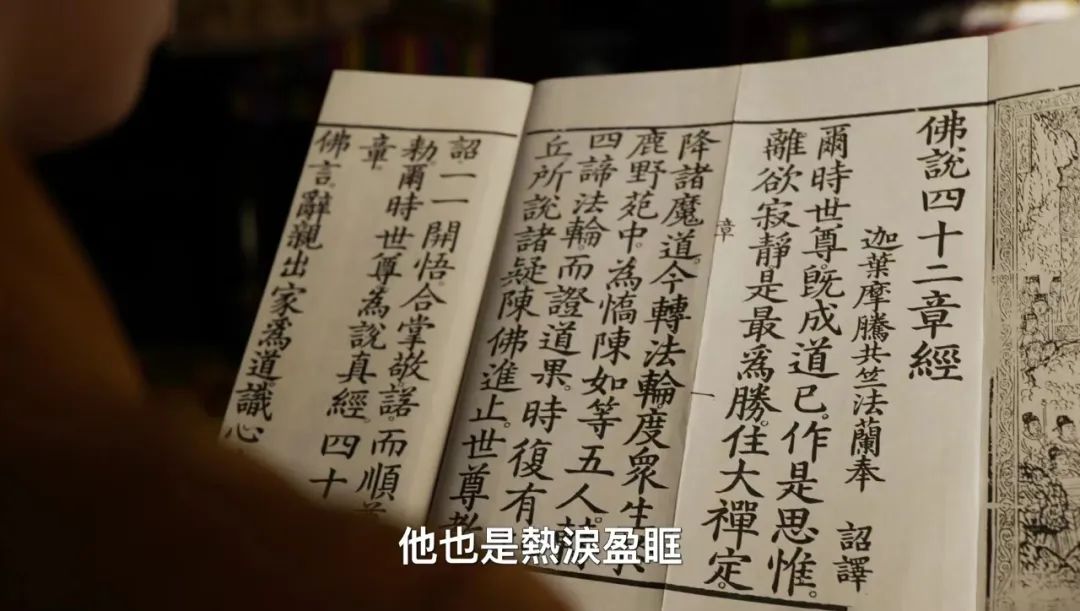 佛說四十二章經
迦葉摩騰共竺法蘭奉 詔譯
爾時世尊。既成道已。作是思惟。
離欲寂靜是最爲勝。住大禪定。
章 一
降諸魔道。今轉法輪度衆生。
鹿野苑中。為憍陳如等五人。
四諦法輪。而證道果。時復有
丘所說諸疑陳佛進止。世尊教
詔。一一開悟。合掌敬諾。而順
勅爾時世尊為說真經四十
章
佛言。辭親出家爲道。識心
他也是熱淚盈眶